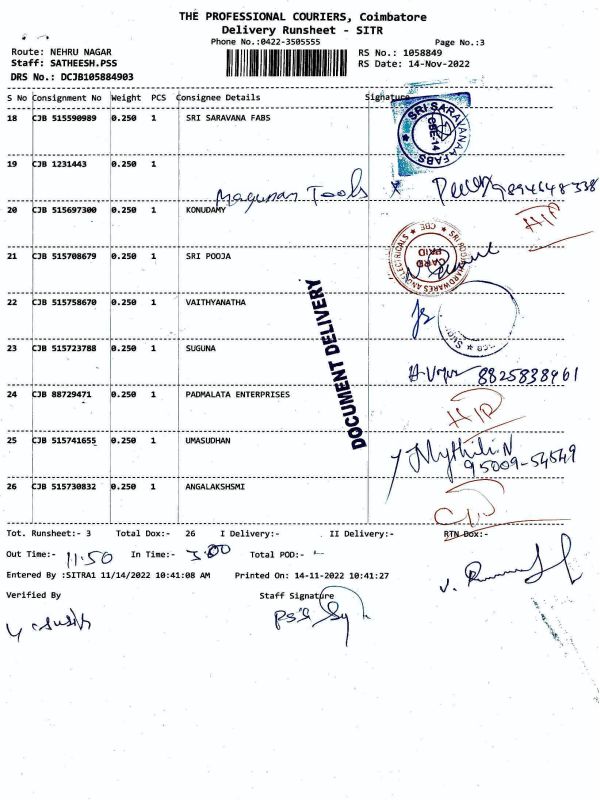 THE PROFESSIONAL COURIERS, Coimbatore
Delivery Runsheet - SITR
Phone No.:0422-3505555 Page No.:3
Route: NEHRU NAGAR RS No.: 1058849
Staff: SATHEESH.PSS RS Date: 14-Nov-2022
DRS No.: DCJB105884903
S No Consignment No Weight PCS Consignee Details Signature
18 CJB 515590989 0.250 1 SRI SARAVANA FABS
SRI SARAVANA FABS CBE-14
19 CJB 1231443 0.250 1
Magunan Tools 9894648338
20 CJB 515697300 0.250 1 KONUDAMY
21 CJB 515708679 0.250 1 SRI POOJA
SRI POOJA HARDWARES AND ELECTRICALS CBE
22 CJB 515758670 0.250 1 VAITHYANATHA
23 CJB 515723788 0.250 1 SUGUNA
8825838961
24 CJB 88729471 0.250 1 PADMALATA ENTERPRISES
25 CJB 515741655 0.250 1 UMASUDHAN
Mythili.N
95009-54549
26 CJB 515730832 0.250 1 ANGALAKSHSMI
DOCUMENT DELIVERY
Tot. Runsheet:- 3 Total Dox:- 26 I Delivery:- II Delivery:- RTN Dox:-
Out Time:- 11.50 In Time:- 3.00 Total POD:-
Entered By :SITRA1 11/14/2022 10:41:08 AM Printed On: 14-11-2022 10:41:27
Verified By Staff Signature